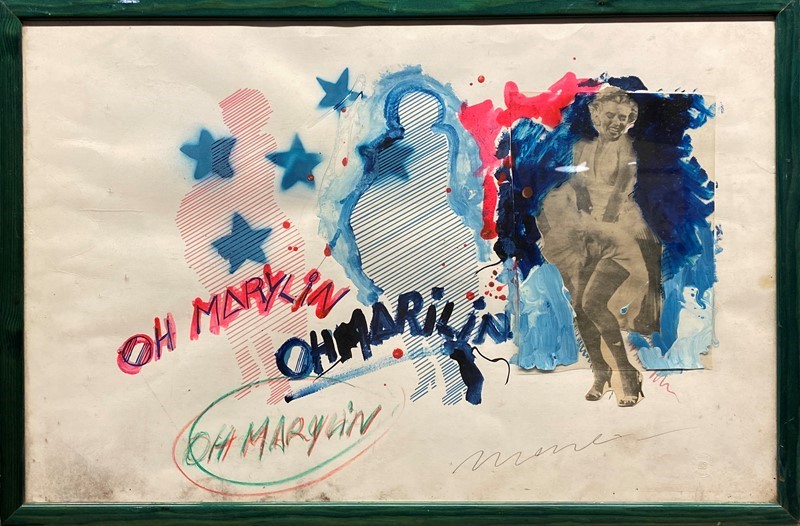 OH MARYLIN
OH MARILIN
OH MARYLIN